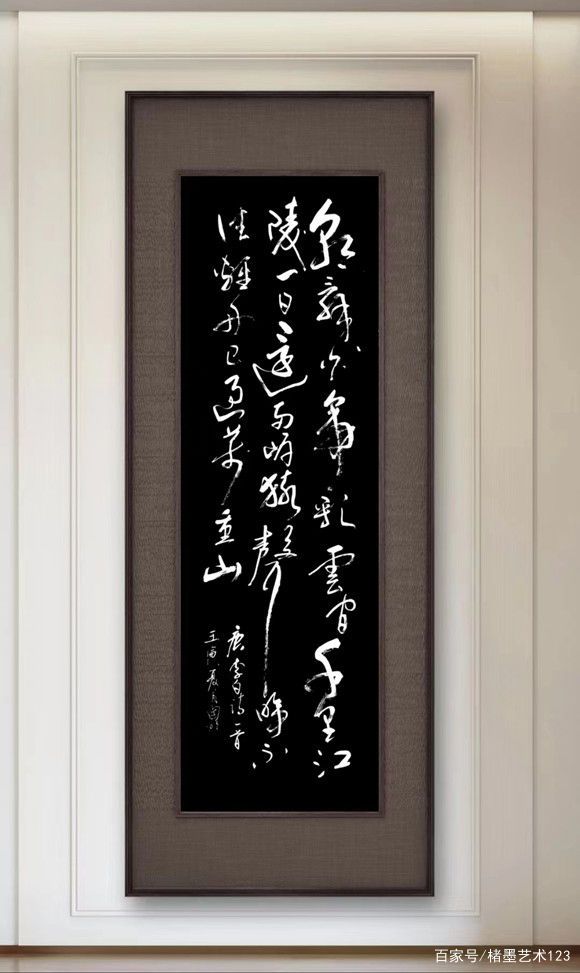 朝辞白帝彩雲間千里江
陵一日還两岸猿聲啼不
住輕舟已過萬重山
唐李白诗一首
百家号/楮墨艺术123